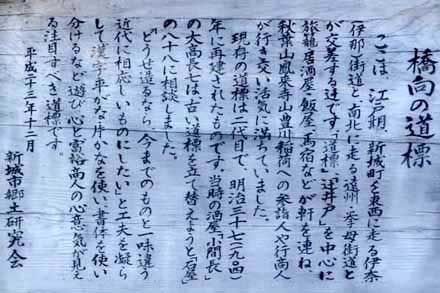 橋向の道標
ここは、江戸期、新城町を東西に走る伊奈
(伊那)街道と、南北に走る遠州・挙母街道と
が交差する辻です。道標「辻井戸」を中心に
旅籠、居酒屋、飯屋、馬宿などが軒を連ね、
秋葉山、鳳来寺山、豊川稲荷への参詣人や行商人
が行き交い活気に満ちていました。
現存の道標は二代目で、明治三十七(一九〇四)
年に再建されたものです。当時の酒屋「小間長」
の大高長七は、古い道標を立て替えようと石屋
の八十八に相談しました。
「どうせ造るなら、今までのものと一味違う
近代に相応しいものにしたい」と工夫を凝ら
して、漢字、平がな、片かなを使い、書体を使い
分けるなど遊び心と富裕商人の心意気が見え
る注目すべき道標です。
平成二十三年十二月
新城市郷土研究会